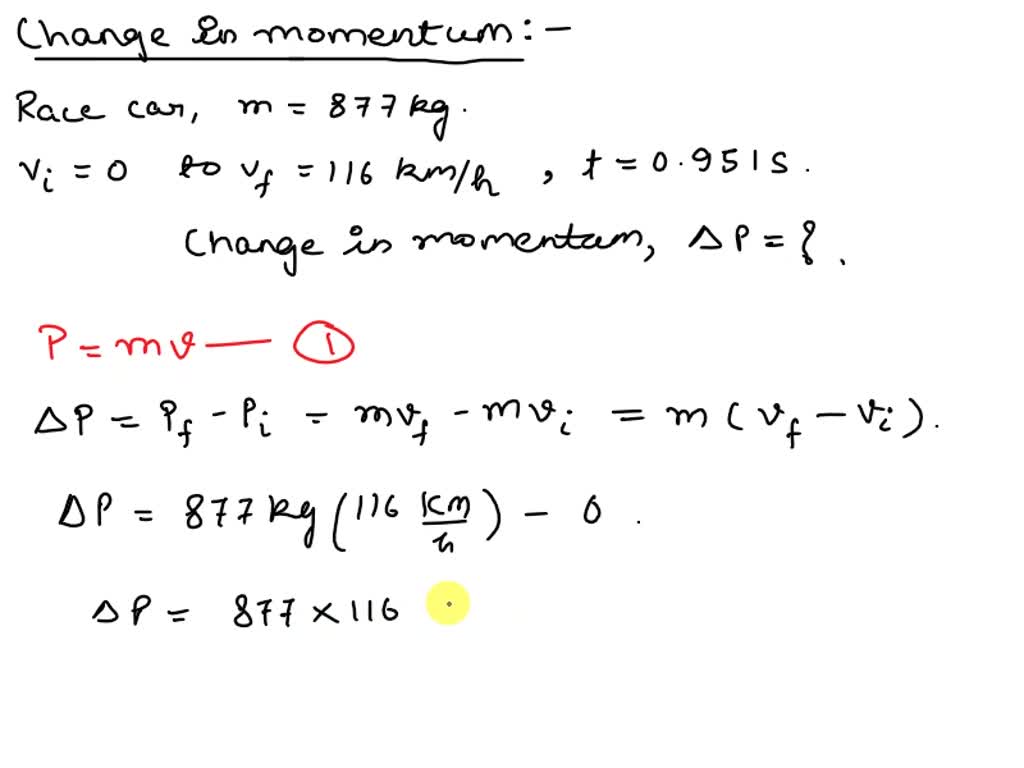 Change in momentum:-
Race car, m = 877 kg.
vi = 0 to vf = 116 km/h, t = 0.951 s.
Change in momentum, ΔP = ?.
P = mv — ①
ΔP = Pf - Pi = mvf - mvi = m(vf - vi).
ΔP = 877 kg (116 km/h) - 0.
ΔP = 877 × 116